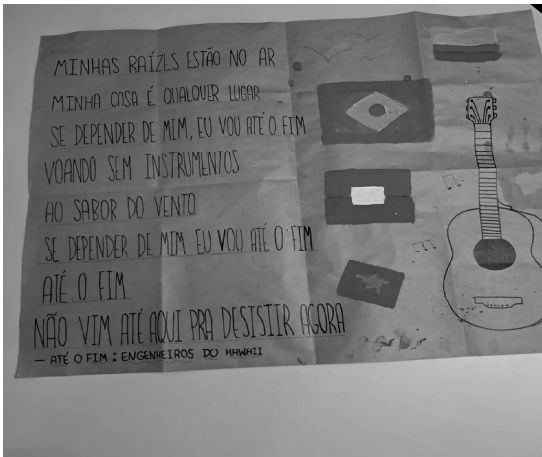 MINHAS RAÍZES ESTÃO NO AR
MINHA CASA É QUALQUER LUGAR
SE DEPENDER DE MIM, EU VOU ATÉ O FIM
VOANDO SEM INSTRUMENTOS
AO SABOR DO VENTO
SE DEPENDER DE MIM, EU VOU ATÉ O FIM
ATÉ O FIM
NÃO VIM ATÉ AQUI PRA DESISTIR AGORA
— ATÉ O FIM : ENGENHEIROS DO HAWAII